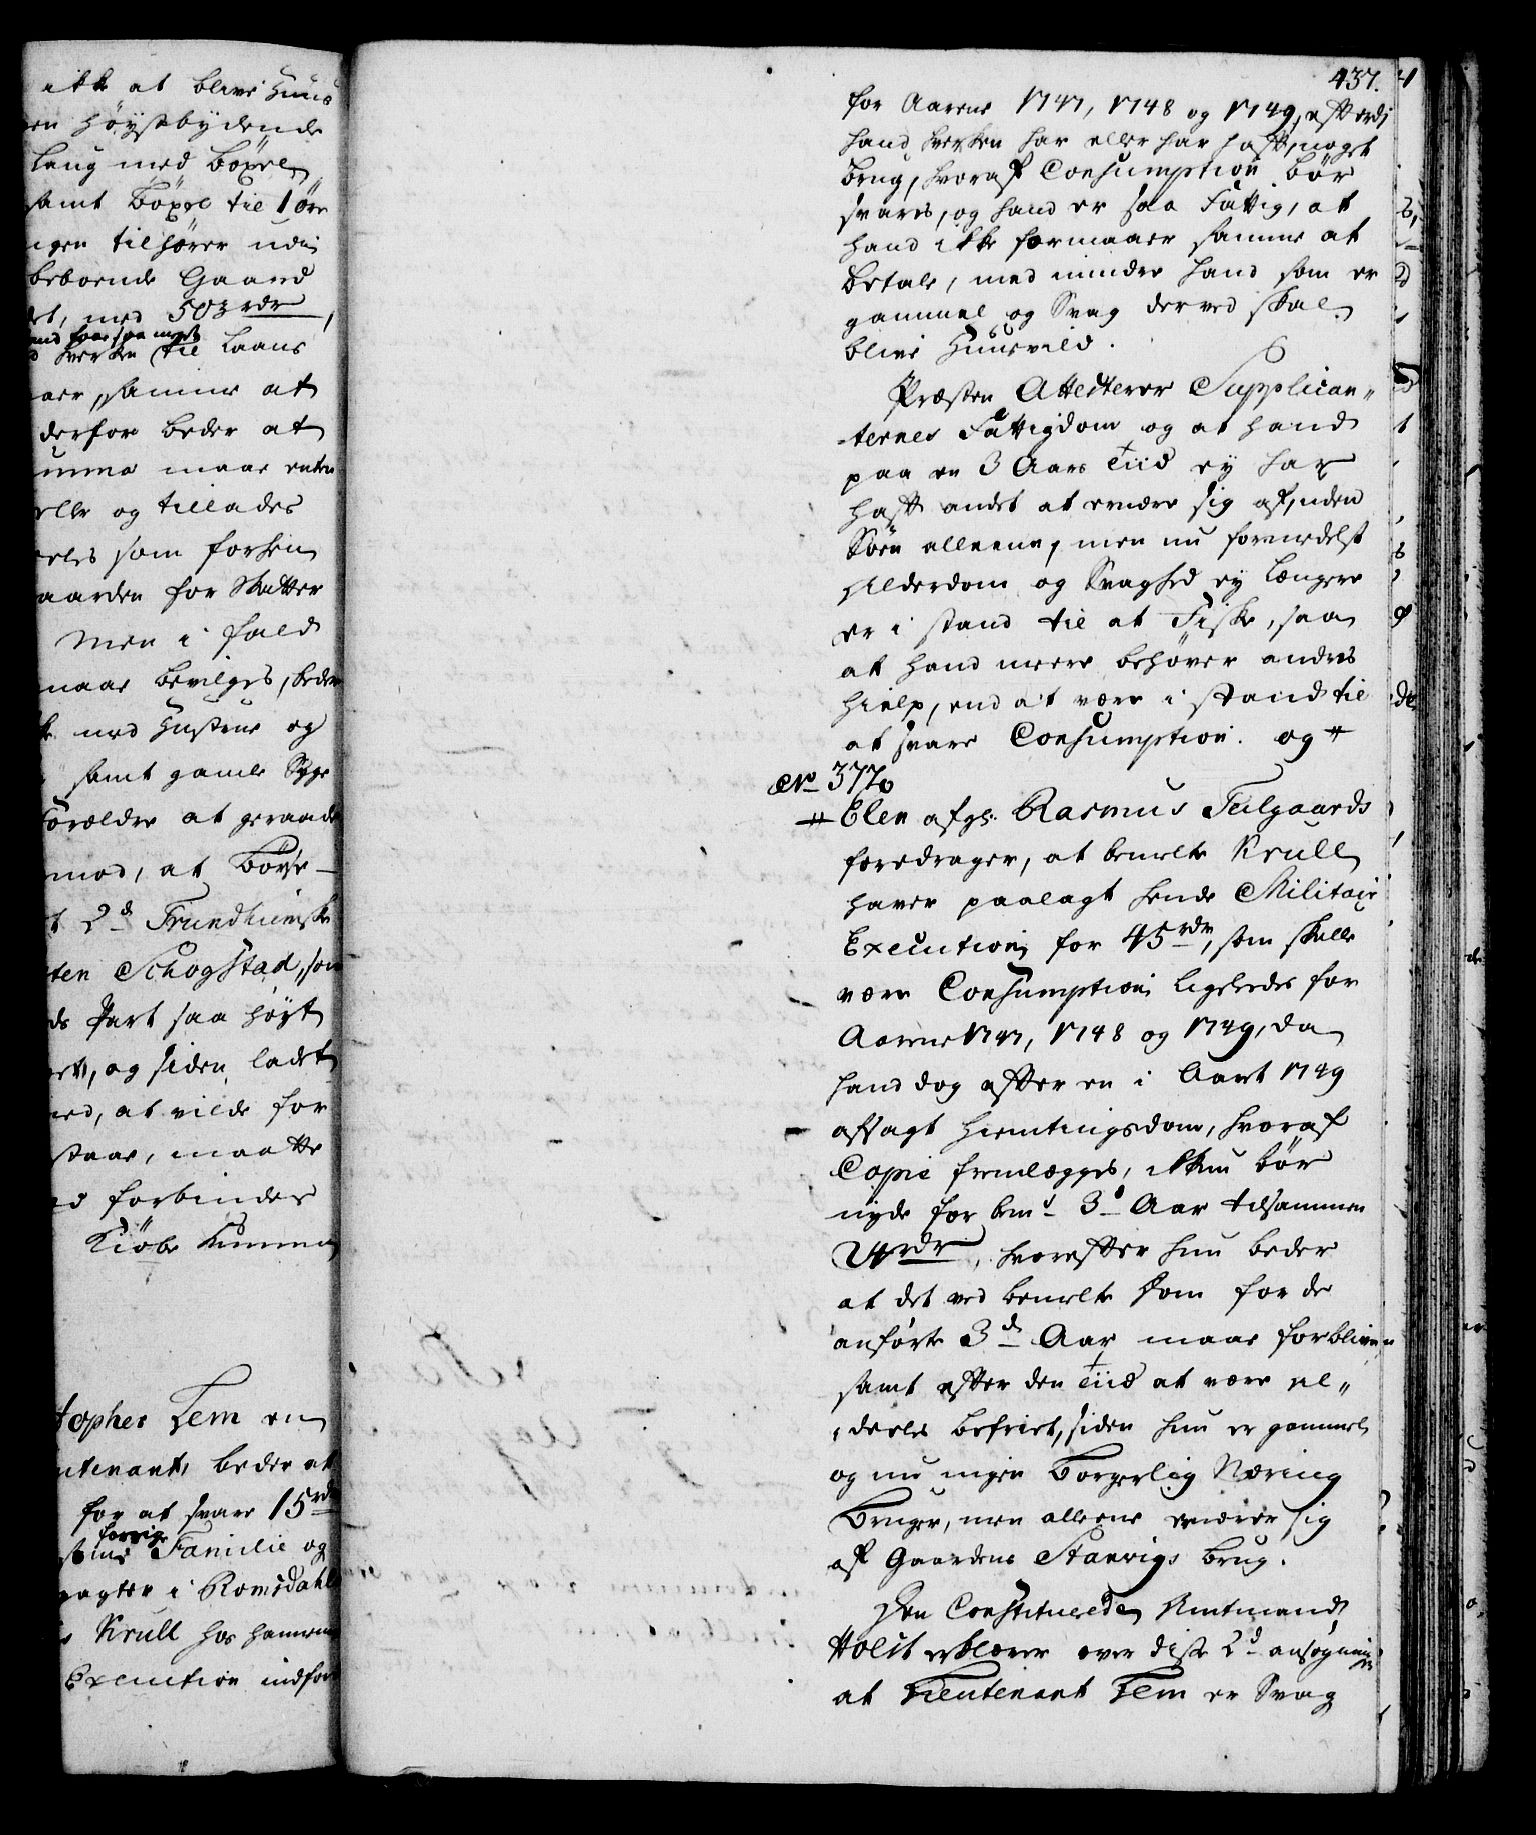 ikke at blive Huus
en høystbydende
laug med böxel
samt böxel til 1 öre
igen tilhører udi
beboende Gaard
det, med 503 rdr
hand faar saa meget
hverken til laans
aar, samme at
derfor beder at
umma maae enten
eller og tillades
eeles som forhen
aarden for Skatter
Men i fald
maae bevilges, beder
med Hustrue og
samt gamle Syge
Forældre at geraade
mod, at
t 2de Trundhiemske
ten Schogstad, som
ds Part saa høyt
ert, og siden ladet
med, at vilde for
staae, maatte
ed forbinder
Kiöbe Summa
topher Lem en
utenant, beder at
for at svare 15 rdr
forrige
sine Familie og
gagter i Romsdahl
Krull hos hannem
Execution indfor
437.
for Aarene 1747, 1748 og 1749, efterdj
hand hverken har eller har haft noget
brug, hvoraf Consumption bör
svares, og hand er saa Fattig, at
hand ikke formaaer samme at
betale, med mindre hand som er
gammel og Svag derved skal
blive Huusvild.
Præsten Attesterer Supplican„
-ternes Fattigdom og at hand
paa en 3 Aars Tiid ey har
haft andet at ernære sig af, uden
Söen alleene, men nu formedelst
Alderdom og Svaghed ey længere
er i stand til at Fiske, saa
at hand meere behöver andres
hielp, end at være i stand til
at svare Consumption. og #
No 3770
# Elen afgl: Rasmus Teilgaards
foredrager, at bemelte Krull
haver paalagt hende Militair
Execution for 45 rdr, som skulle
være Consumption ligeledes for
Aarene 1747, 1748 og 1749, da
hand dog efter en i Aaret 1749
afsagt Hiemtingsdom, hvoraf
Copie fremlægges, ikkun bör
nyde for bemte 3de Aar tilsammen
24 rdr, hvorefter hun beder
at det ved bemelte Dom for de
anförte 3de Aar maae forblive
samt efter den Tiid at være al„
„deeles befriet, siden hun er gammel
og nu ingen Borgerlig Næring
Bruger, men alleene ernærer sig
af Gaardens Stanvigs brug.
Den Constituerede Amtmand
Holst erklærer over disse 2de ansögninger
at Lieutenant Lem er Svag